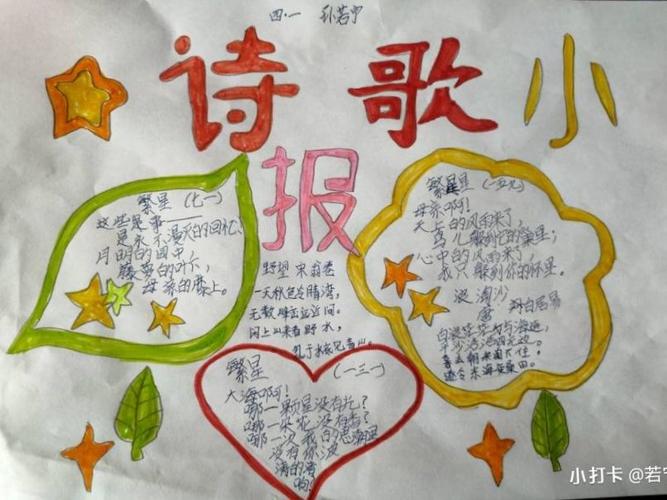 四.一 孙若宁
诗歌小
报
繁星(七一)
这些是事——
是永不漫灭的回忆、
月明的园中
藤萝的叶下,
母亲的膝上。
繁星(一五九)
母亲啊!
天上的风雨来了,
鸟儿躲到它的巢里;
心中的风雨来了,
我只躲到你的怀里。
浪淘沙
唐 白居易
白浪茫茫与海连,
平沙浩浩四无边。
暮去朝来淘不住,
遂令东海变桑田。
野望 宋 翁卷
一天秋色冷晴湾,
无数峰峦远近间。
闲上山来看野水,
繁星 (一三一)
大海啊!
哪一颗星没有光?
哪一朵花没有香?
哪一次我的思潮里
没有你波
涛的清
响?
小打卡 @若宁